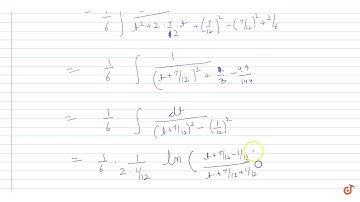 = 1/6 ∫ 1/(t² + 2 · 7/12 · t + (7/12)² − (7/12)² + 2/6
= 1/6 ∫ 1/((t + 7/12)² + 1/3 − 49/144
= 1/6 ∫ dt/((t + 7/12)² − (1/12)²
= 1/6 · 1/(2 · 1/12) ln ( (t + 7/12 − 1/12)/(t + 7/12 + 1/12)